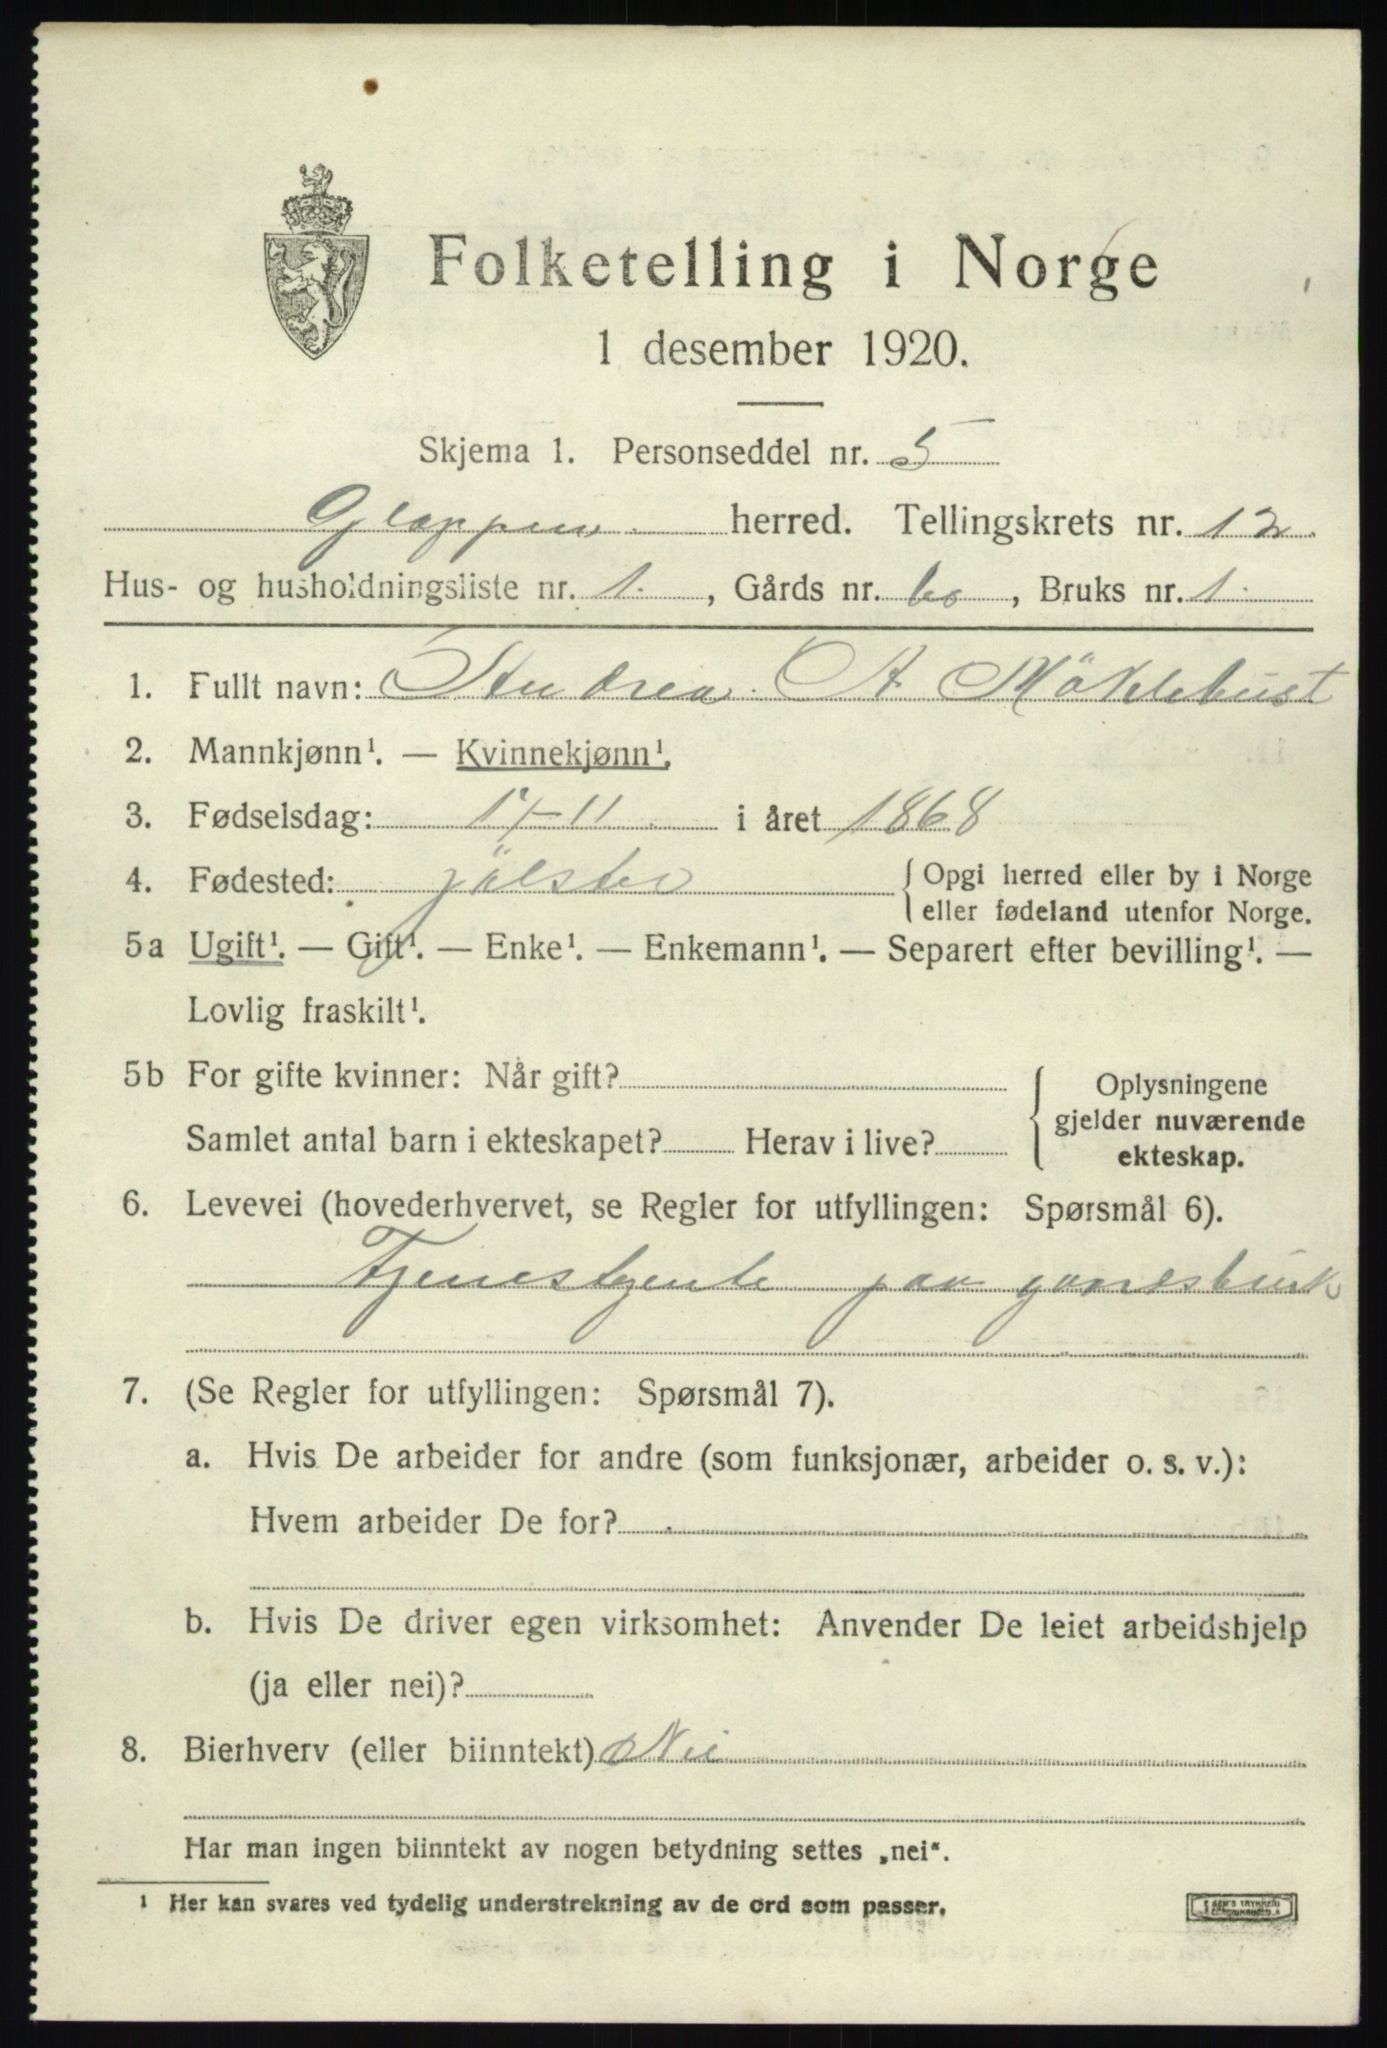 Folketelling i Norge
1 desember 1920.
Skjema 1. Personseddel nr. 5
Gloppen herred. Tellingskrets nr. 12
Hus- og husholdningsliste nr. 1. , Gårds nr. 60 , Bruks nr. 1.
1. Fullt navn: Andrea A Möklebust
2. Mannkjønn¹. — Kvinnekjønn¹.
3. Fødselsdag: 17-11 i året 1868
4. Fødested: jölster { Opgi herred eller by i Norge
eller fødeland utenfor Norge.
5a Ugift¹. — Gift¹. — Enke¹. — Enkemann¹. — Separert efter bevilling¹. —
Lovlig fraskilt¹.
5b For gifte kvinner: Når gift?
Samlet antal barn i ekteskapet? Herav i live?
Oplysningene
gjelder nuværende
ekteskap.
6. Levevei (hovederhvervet, se Regler for utfyllingen: Spørsmål 6).
Tjenestgente paa gardsbruk
7. (Se Regler for utfyllingen: Spørsmål 7).
a. Hvis De arbeider for andre (som funksjonær, arbeider o. s. v.):
Hvem arbeider De for?
b. Hvis De driver egen virksomhet: Anvender De leiet arbeidshjelp
(ja eller nei)?
8. Bierhverv (eller biinntekt) Nei
Har man ingen biinntekt av nogen betydning settes „nei“.
¹ Her kan svares ved tydelig understrekning av de ord som passer.